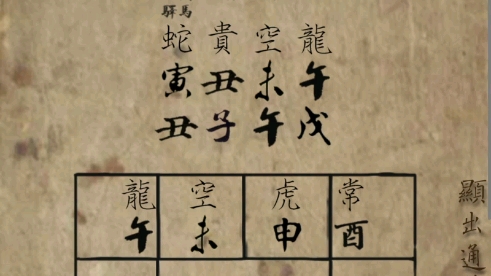 驛馬
蛇貴空龍
寅丑未午
丑子午戊
龍空虎常
午未申酉
顯出通